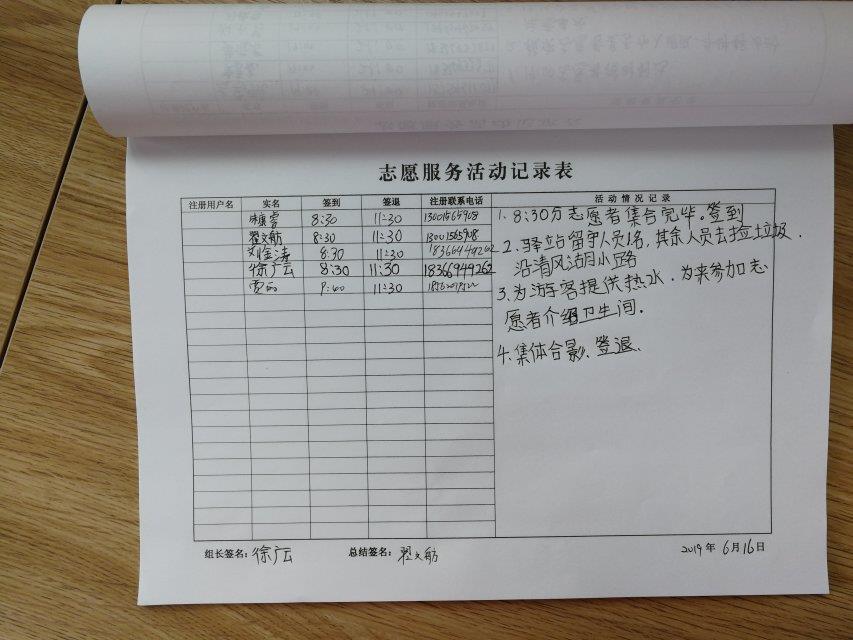 志愿服务活动记录表
注册用户名 实名 签到 签退 注册联系电话 活动情况记录
8:30 11:30 13001565908
翟文舫 8:30 11:30 13001565908
刘金涛 8:30 11:30 18366449262
徐广云 8:30 11:30 18366949262
贾丽 9:00 11:30
1. 8:30分志愿者集合完毕。签到
2. 驿站留守人员1名,其余人员去捡垃圾.
沿清风湖小路
3. 为游客提供热水.为来参加志
愿者介绍卫生间.
4. 集体合影、签退.
组长签名: 徐广云 总结签名: 翟文舫 2019年6月16日